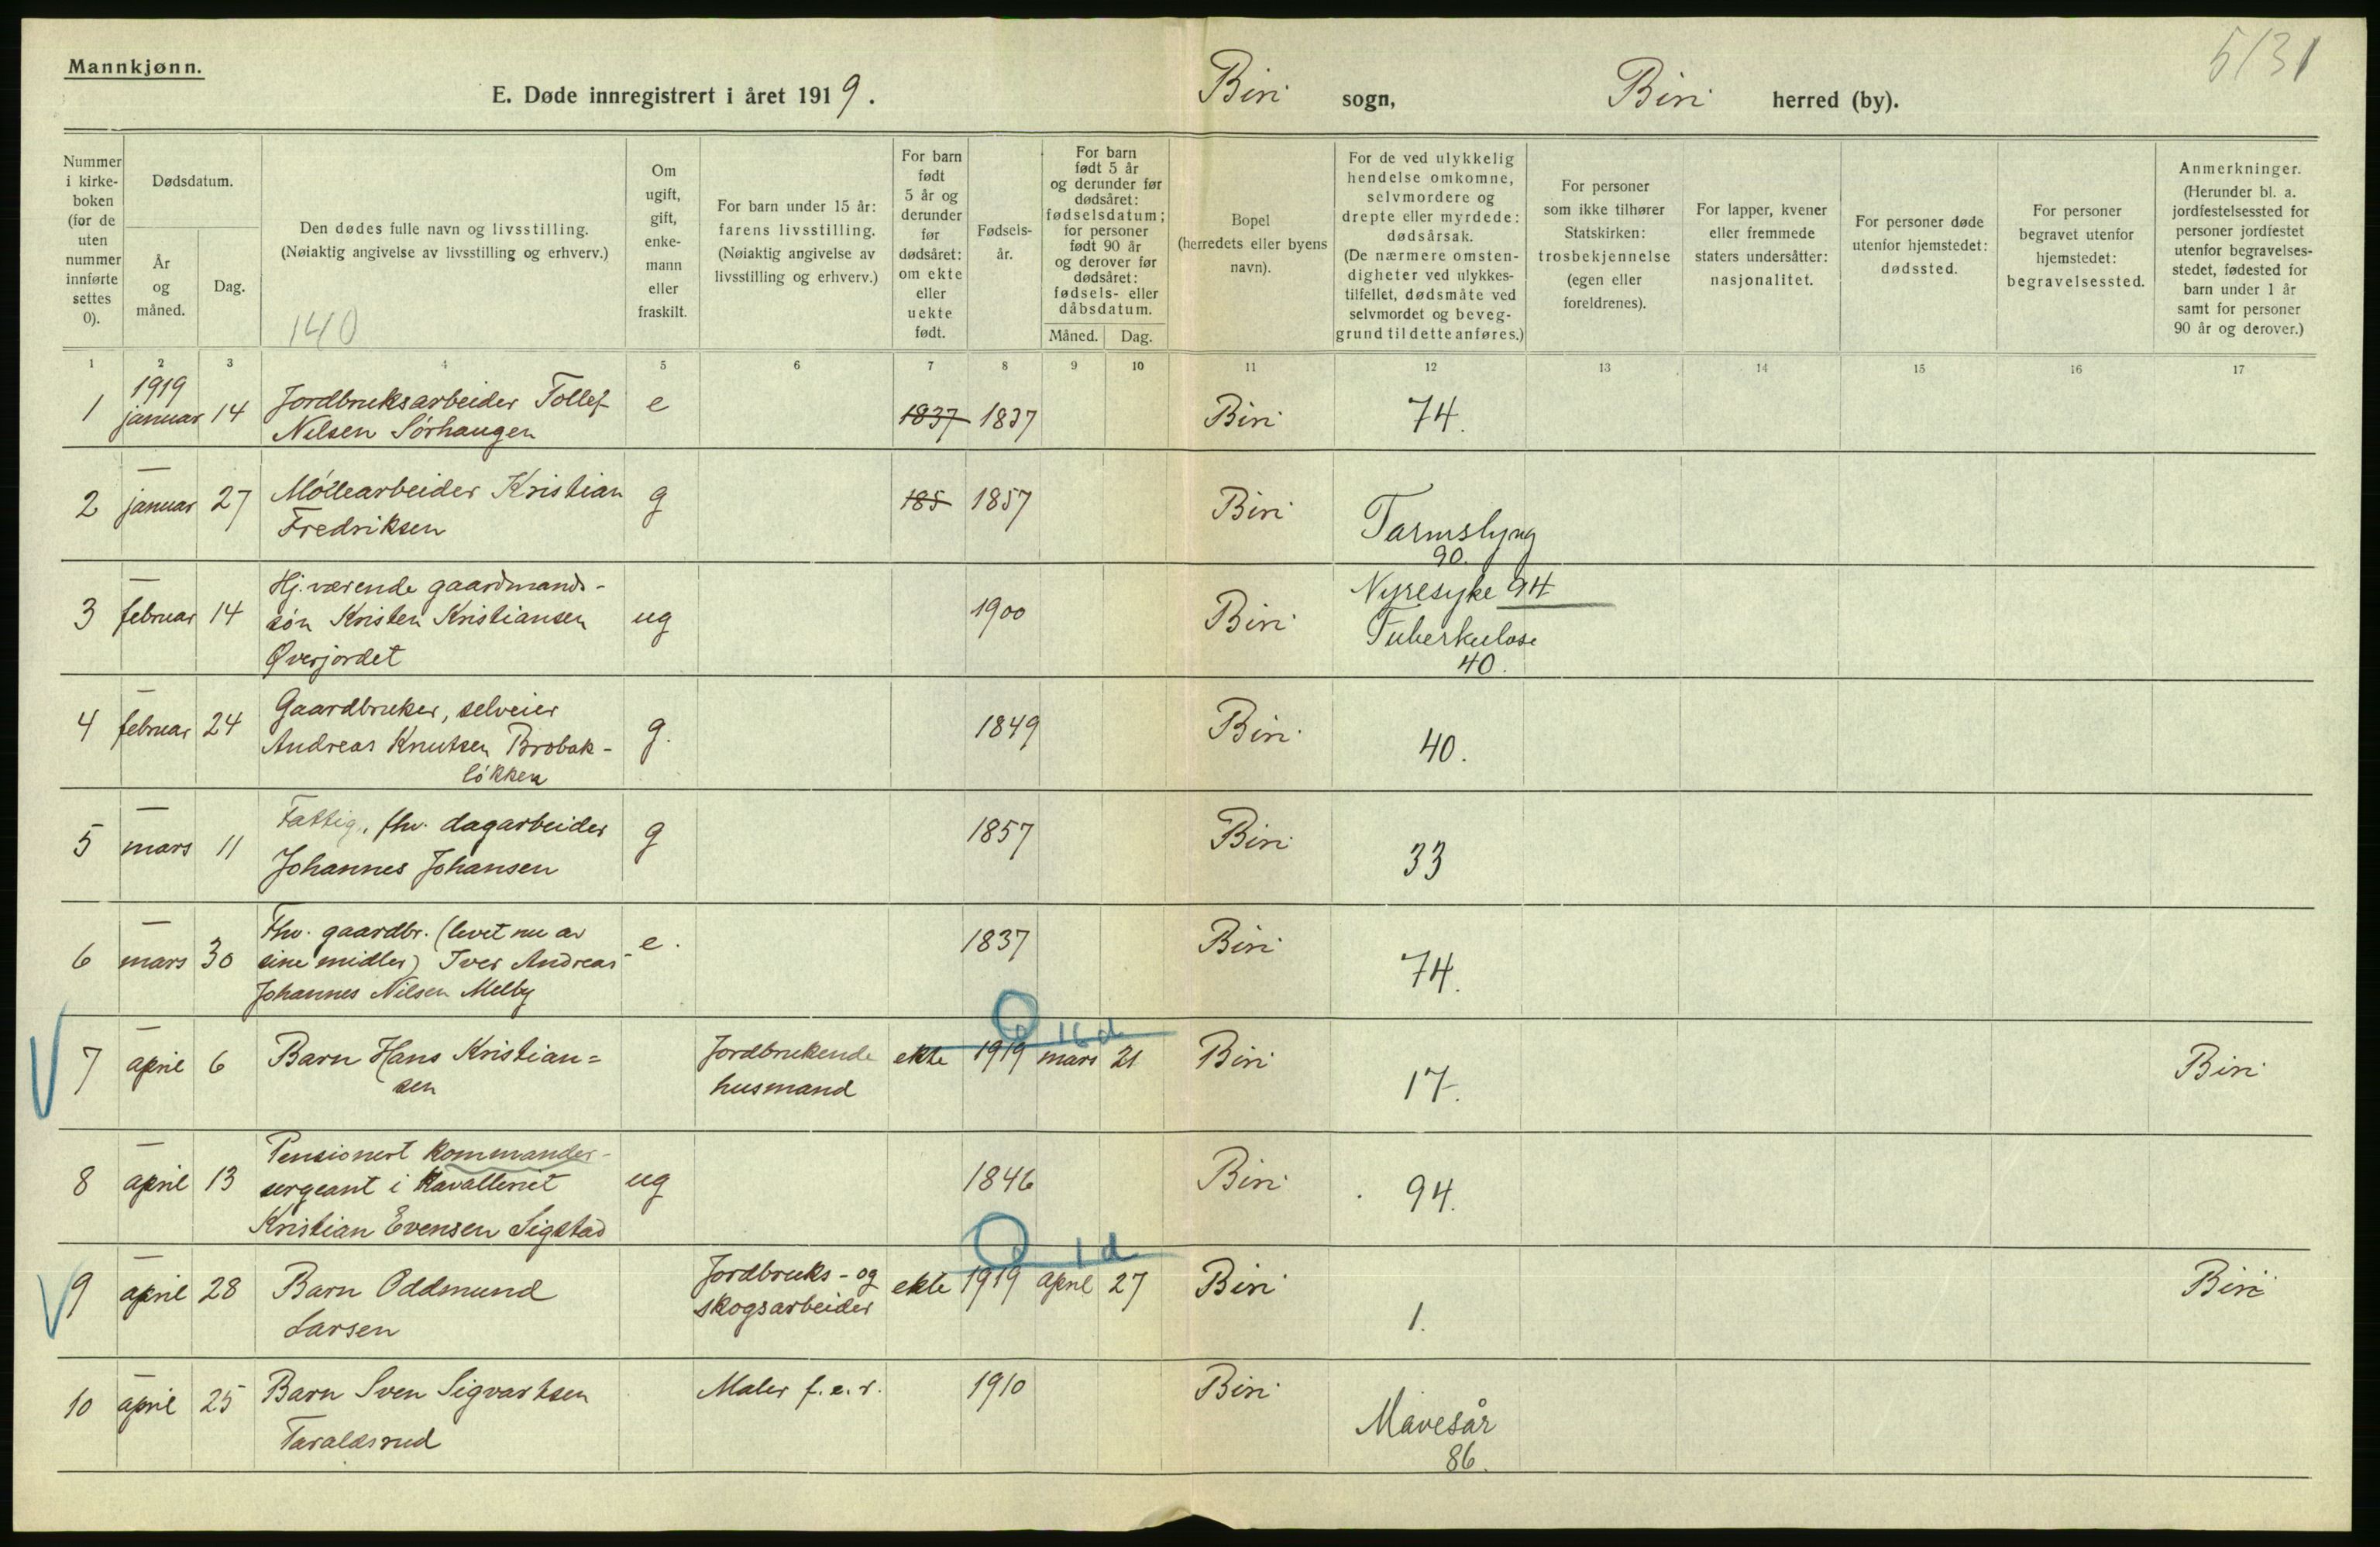 5131
Mannkjønn.
E. Døde innregistrert i året 1919.
Biri sogn, Biri herred (by).
Nummer i kirkeboken (for de uten nummer innførte settes 0).
Dødsdatum.
År og måned.
Dag.
Den dødes fulle navn og livsstilling.
(Nøiaktig angivelse av livsstilling og erhverv.)
140
Om ugift, gift, enkemann eller fraskilt.
For barn under 15 år: farens livsstilling. (Nøiaktig angivelse av livsstilling og erhverv.)
For barn født 5 år og derunder før dødsåret: om ekte eller uekte født.
Fødselsår.
For barn født 5 år og derunder før dødsåret: fødselsdatum; for personer født 90 år og derover før dødsåret: fødsels- eller dåbsdatum.
Måned. Dag.
Bopel (herredets eller byens navn).
For de ved ulykkelig hendelse omkomne, selvmordere og drepte eller myrdede: dødsårsak. (De nærmere omstendigheter ved ulykkestilfellet, dødsmåte ved selvmordet og beveggrund til dette anføres.)
For personer som ikke tilhører Statskirken: trosbekjennelse (egen eller foreldrenes).
For lapper, kvener eller fremmede staters undersåtter: nasjonalitet.
For personer døde utenfor hjemstedet: dødssted.
For personer begravet utenfor hjemstedet: begravelsessted.
Anmerkninger. (Herunder bl. a. jordfestelsessted for personer jordfestet utenfor begravelsesstedet, fødested for barn under 1 år samt for personer 90 år og derover.)
1 2 3 4 5 6 7 8 9 10 11 12 13 14 15 16 17
1919
1 januar 14 Jordbruksarbeider Tollef e 1837 1837 Biri 74.
Nilsen Sørhaugen
2 – januar 27 Møllearbeider Kristian g 185 1857 Biri Tarmslyng
Fredriksen 90.
Hj. værende gaardmands- Nyresyke 94
3 – februar 14 søn Kristen Kristiansen ug 1900 Biri Tuberkulose
Øverjordet 40.
Gaardbruker, selveier
4 – februar 24 Andreas Knutsen Brobak- g. 1849 Biri 40.
løkken
5 – mars 11 Fattig, fhv. dagarbeider g 1857 Biri 33
Johannes Johansen
Fhv. gaardbr. (levet nu av
6 – mars 30 sine midler) Iver Andreas e. 1837 Biri 74.
Johannes Nilsen Melby
16 d
7 – april 6 Barn Hans Kristian= Jordbrukende ekte 1919 mars 21 Biri 17. Biri
sen husmand
Pensionert kommander-
8 – april 13 sergeant i Kavalleriet ug 1846 Biri 94.
Kristian Evensen Sigstad
1 d
9 – april 28 Barn Oddmund Jordbruks- og ekte 1919 april 27 Biri 1. Biri
Larsen skogsarbeider
10 – april 25 Barn Sven Sigvartsen Maler f. e. r. 1910 Biri Mavesår
Taraldsrud 86.